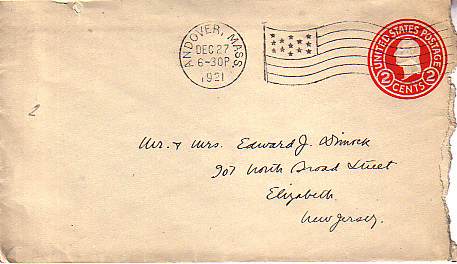 ANDOVER, MASS.
DEC 27
6-30P
1921
UNITED STATES POSTAGE
2 CENTS 2
2
Mr. & Mrs. Edward J. Dimock
907 North Broad Street
Elizabeth
New Jersey.